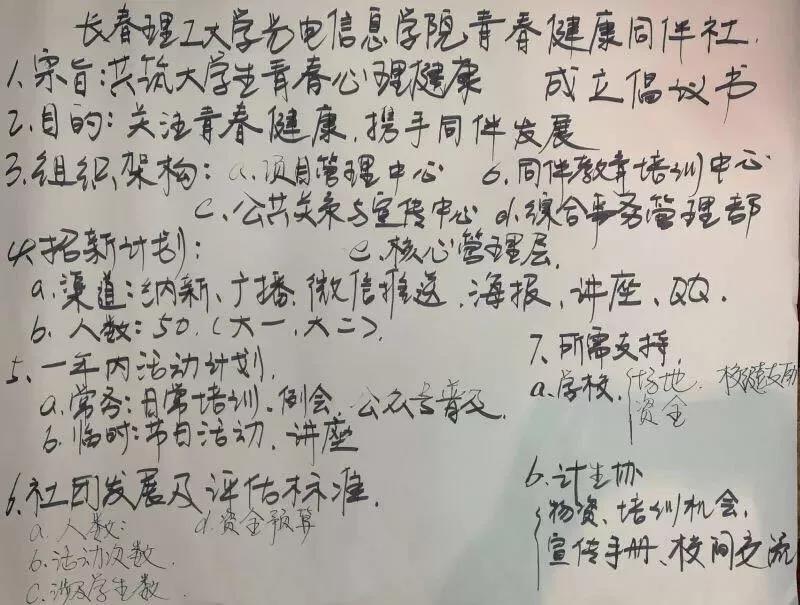 长春理工大学光电信息学院青春健康同伴社
成立倡议书
1.宗旨:共筑大学生青春心理健康
2.目的:关注青春健康,携手同伴发展
3.组织架构: a.项目管理中心 b.同伴教育培训中心
c.公共关系与宣传中心 d.综合事务管理部
e.核心管理层.
4.招新计划:
a.渠道:纳新、广播、微信推送、海报、讲座、QQ.
b.人数:50.(大一、大二).
5.一年内活动计划.
a.常务:日常培训、例会、公众号普及.
b.临时:节日活动、讲座
6.社团发展及评估标准.
a.人数: d.资金预算
b.活动次数.
c.涉及学生数.
7.所需支持.
a.学校.
场地、校
资金
b.计生协
物资、培训机会、
宣传手册、校间交流